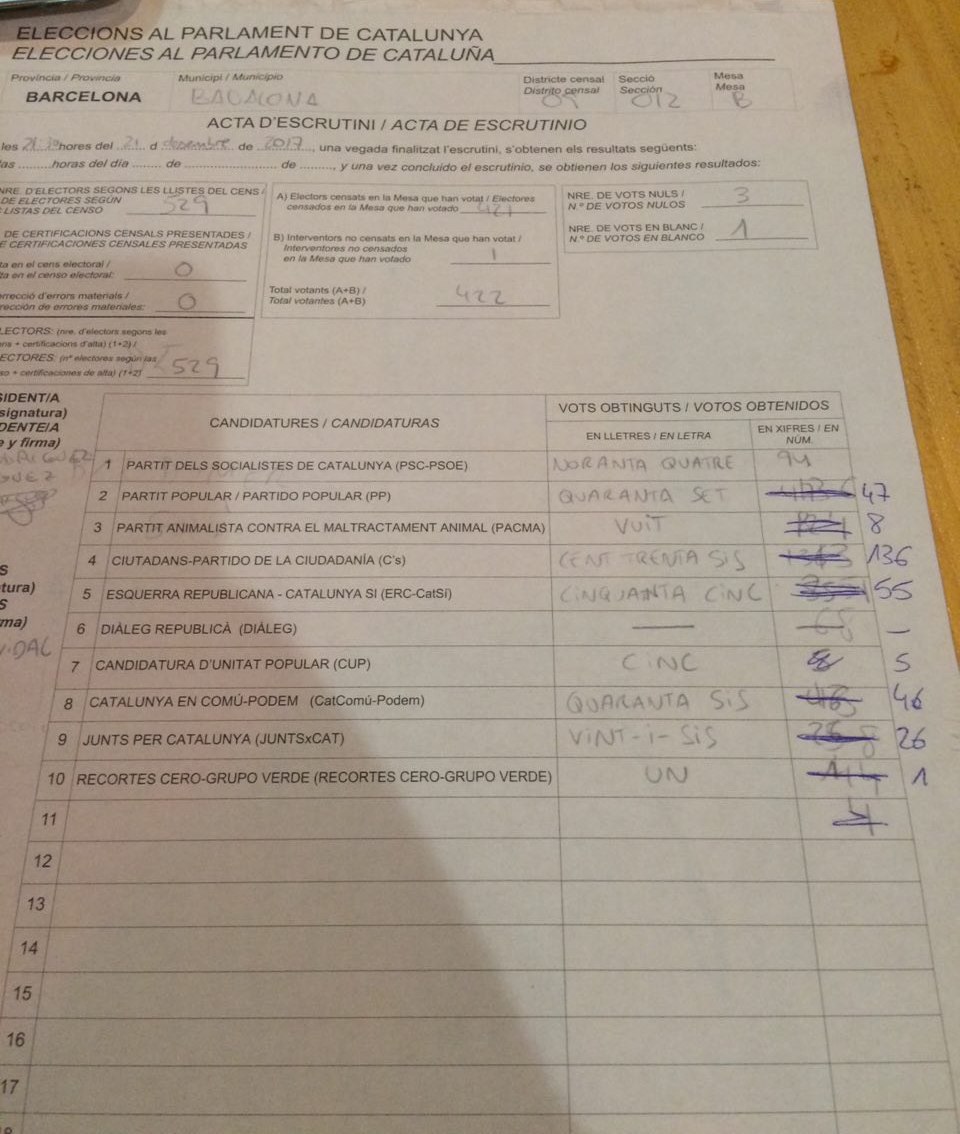 ELECCIONS AL PARLAMENT DE CATALUNYA
ELECCIONES AL PARLAMENTO DE CATALUÑA
Província / Provincia Municipi / Municipio Districte censal Secció Mesa
Distrito censal Sección Mesa
BARCELONA BADALONA 09 012 B
ACTA D'ESCRUTINI / ACTA DE ESCRUTINIO
les hores del 21 d desembre de 2017, una vegada finalitzat l'escrutini, s'obtenen els resultats següents:
as ......... horas del día ........ de .................... de ........, y una vez concluido el escrutinio, se obtienen los siguientes resultados:
NRE. D'ELECTORS SEGONS LES LLISTES DEL CENS /
DE ELECTORES SEGÚN
LISTAS DEL CENSO 529
DE CERTIFICACIONS CENSALS PRESENTADES /
E CERTIFICACIONES CENSALES PRESENTADAS
ta en el cens electoral /
ta en el censo electoral: 0
rrecció d'errors materials /
rrección de errores materiales: 0
LECTORS: (nre. d'electors segons les
ns + certificacions d'alta) (1+2) /
ECTORES: (nº electores según las
so + certificaciones de alta) (1+2) 529
A) Electors censats en la Mesa que han votat / Electores
censados en la Mesa que han votado 421
B) Interventors no censats en la Mesa que han votat /
Interventores no censados
en la Mesa que han votado 1
Total votants (A+B) /
Total votantes (A+B) 422
NRE. DE VOTS NULS /
N.º DE VOTOS NULOS 3
NRE. DE VOTS EN BLANC /
N.º DE VOTOS EN BLANCO 1
SIDENT/A
signatura)
DENTE/A
e y firma)
GUEZ
S
tura)
S
ma)
VIDAL
CANDIDATURES / CANDIDATURAS VOTS OBTINGUTS / VOTOS OBTENIDOS
EN LLETRES / EN LETRA EN XIFRES / EN NÚM.
1 PARTIT DELS SOCIALISTES DE CATALUNYA (PSC-PSOE) NORANTA QUATRE 94
2 PARTIT POPULAR / PARTIDO POPULAR (PP) QUARANTA SET 47
3 PARTIT ANIMALISTA CONTRA EL MALTRACTAMENT ANIMAL (PACMA) VUIT 8
4 CIUTADANS-PARTIDO DE LA CIUDADANÍA (C's) CENT TRENTA SIS 136
5 ESQUERRA REPUBLICANA - CATALUNYA SI (ERC-CatSí) CINQUANTA CINC 55
6 DIÀLEG REPUBLICÀ (DIÀLEG) — —
7 CANDIDATURA D'UNITAT POPULAR (CUP) CINC 5
8 CATALUNYA EN COMÚ-PODEM (CatComú-Podem) QUARANTA SIS 46
9 JUNTS PER CATALUNYA (JUNTSxCAT) VINT-I-SIS 26
10 RECORTES CERO-GRUPO VERDE (RECORTES CERO-GRUPO VERDE) UN 1
11
12
13
14
15
16
17